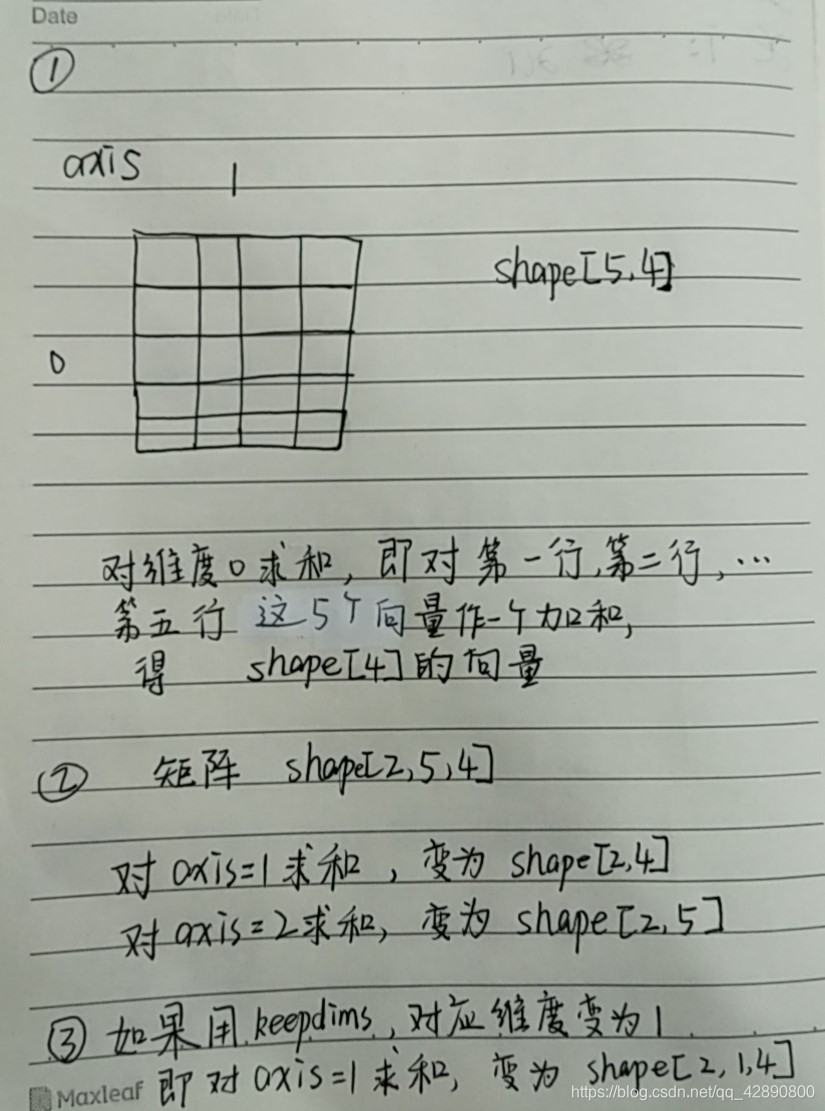 Date
①
axis 1
shape[5,4]
0
对维度0求和, 即对第一行,第二行, …
第五行 这5个向量作一个加和,
得 shape[4]的向量
② 矩阵 shape[2,5,4]
对 axis=1 求和 , 变为 shape[2,4]
对 axis=2求和, 变为 shape[2,5]
③ 如果用 keepdims, 对应维度变为1
即对 axis=1 求和, 变为 shape[2,1,4]
Maxleaf
https://blog.csdn.net/qq_42890800